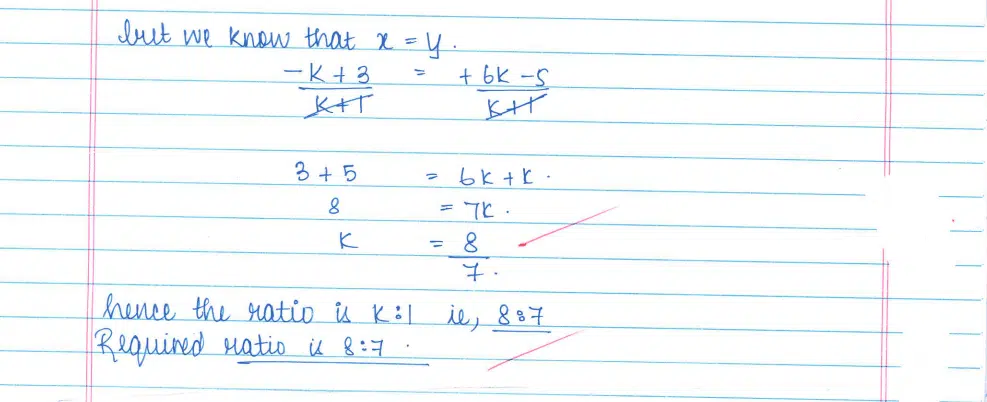 but we know that x = y.
-K + 3 = + 6K - 5
K+1 K+1
3 + 5 = 6K + K.
8 = 7K.
K = 8
7.
hence the ratio is K:1 ie, 8:7
Required ratio is 8:7.